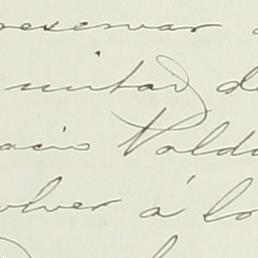 reservar
mitad de
acio Vald
olver á lo